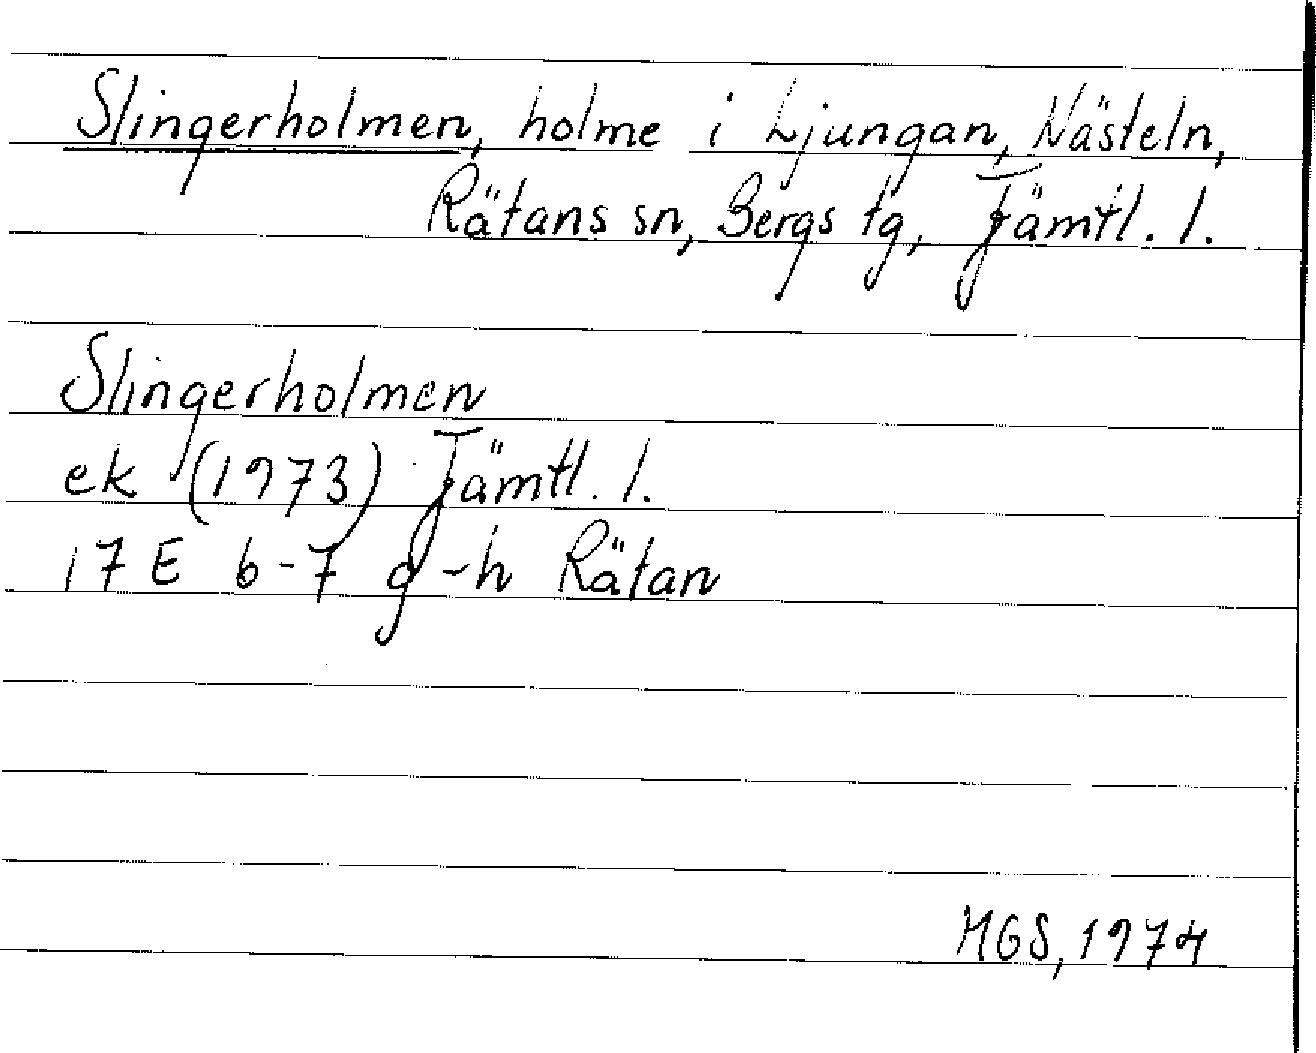 Slingerholmen, holme i Ljungan, Nästeln,
Rätans sn, Bergs tg, Jämtl. l.
Slingerholmen
ek (1973) Jämtl. l.
17 E 6-7 g-h Rätan
MGS, 1974